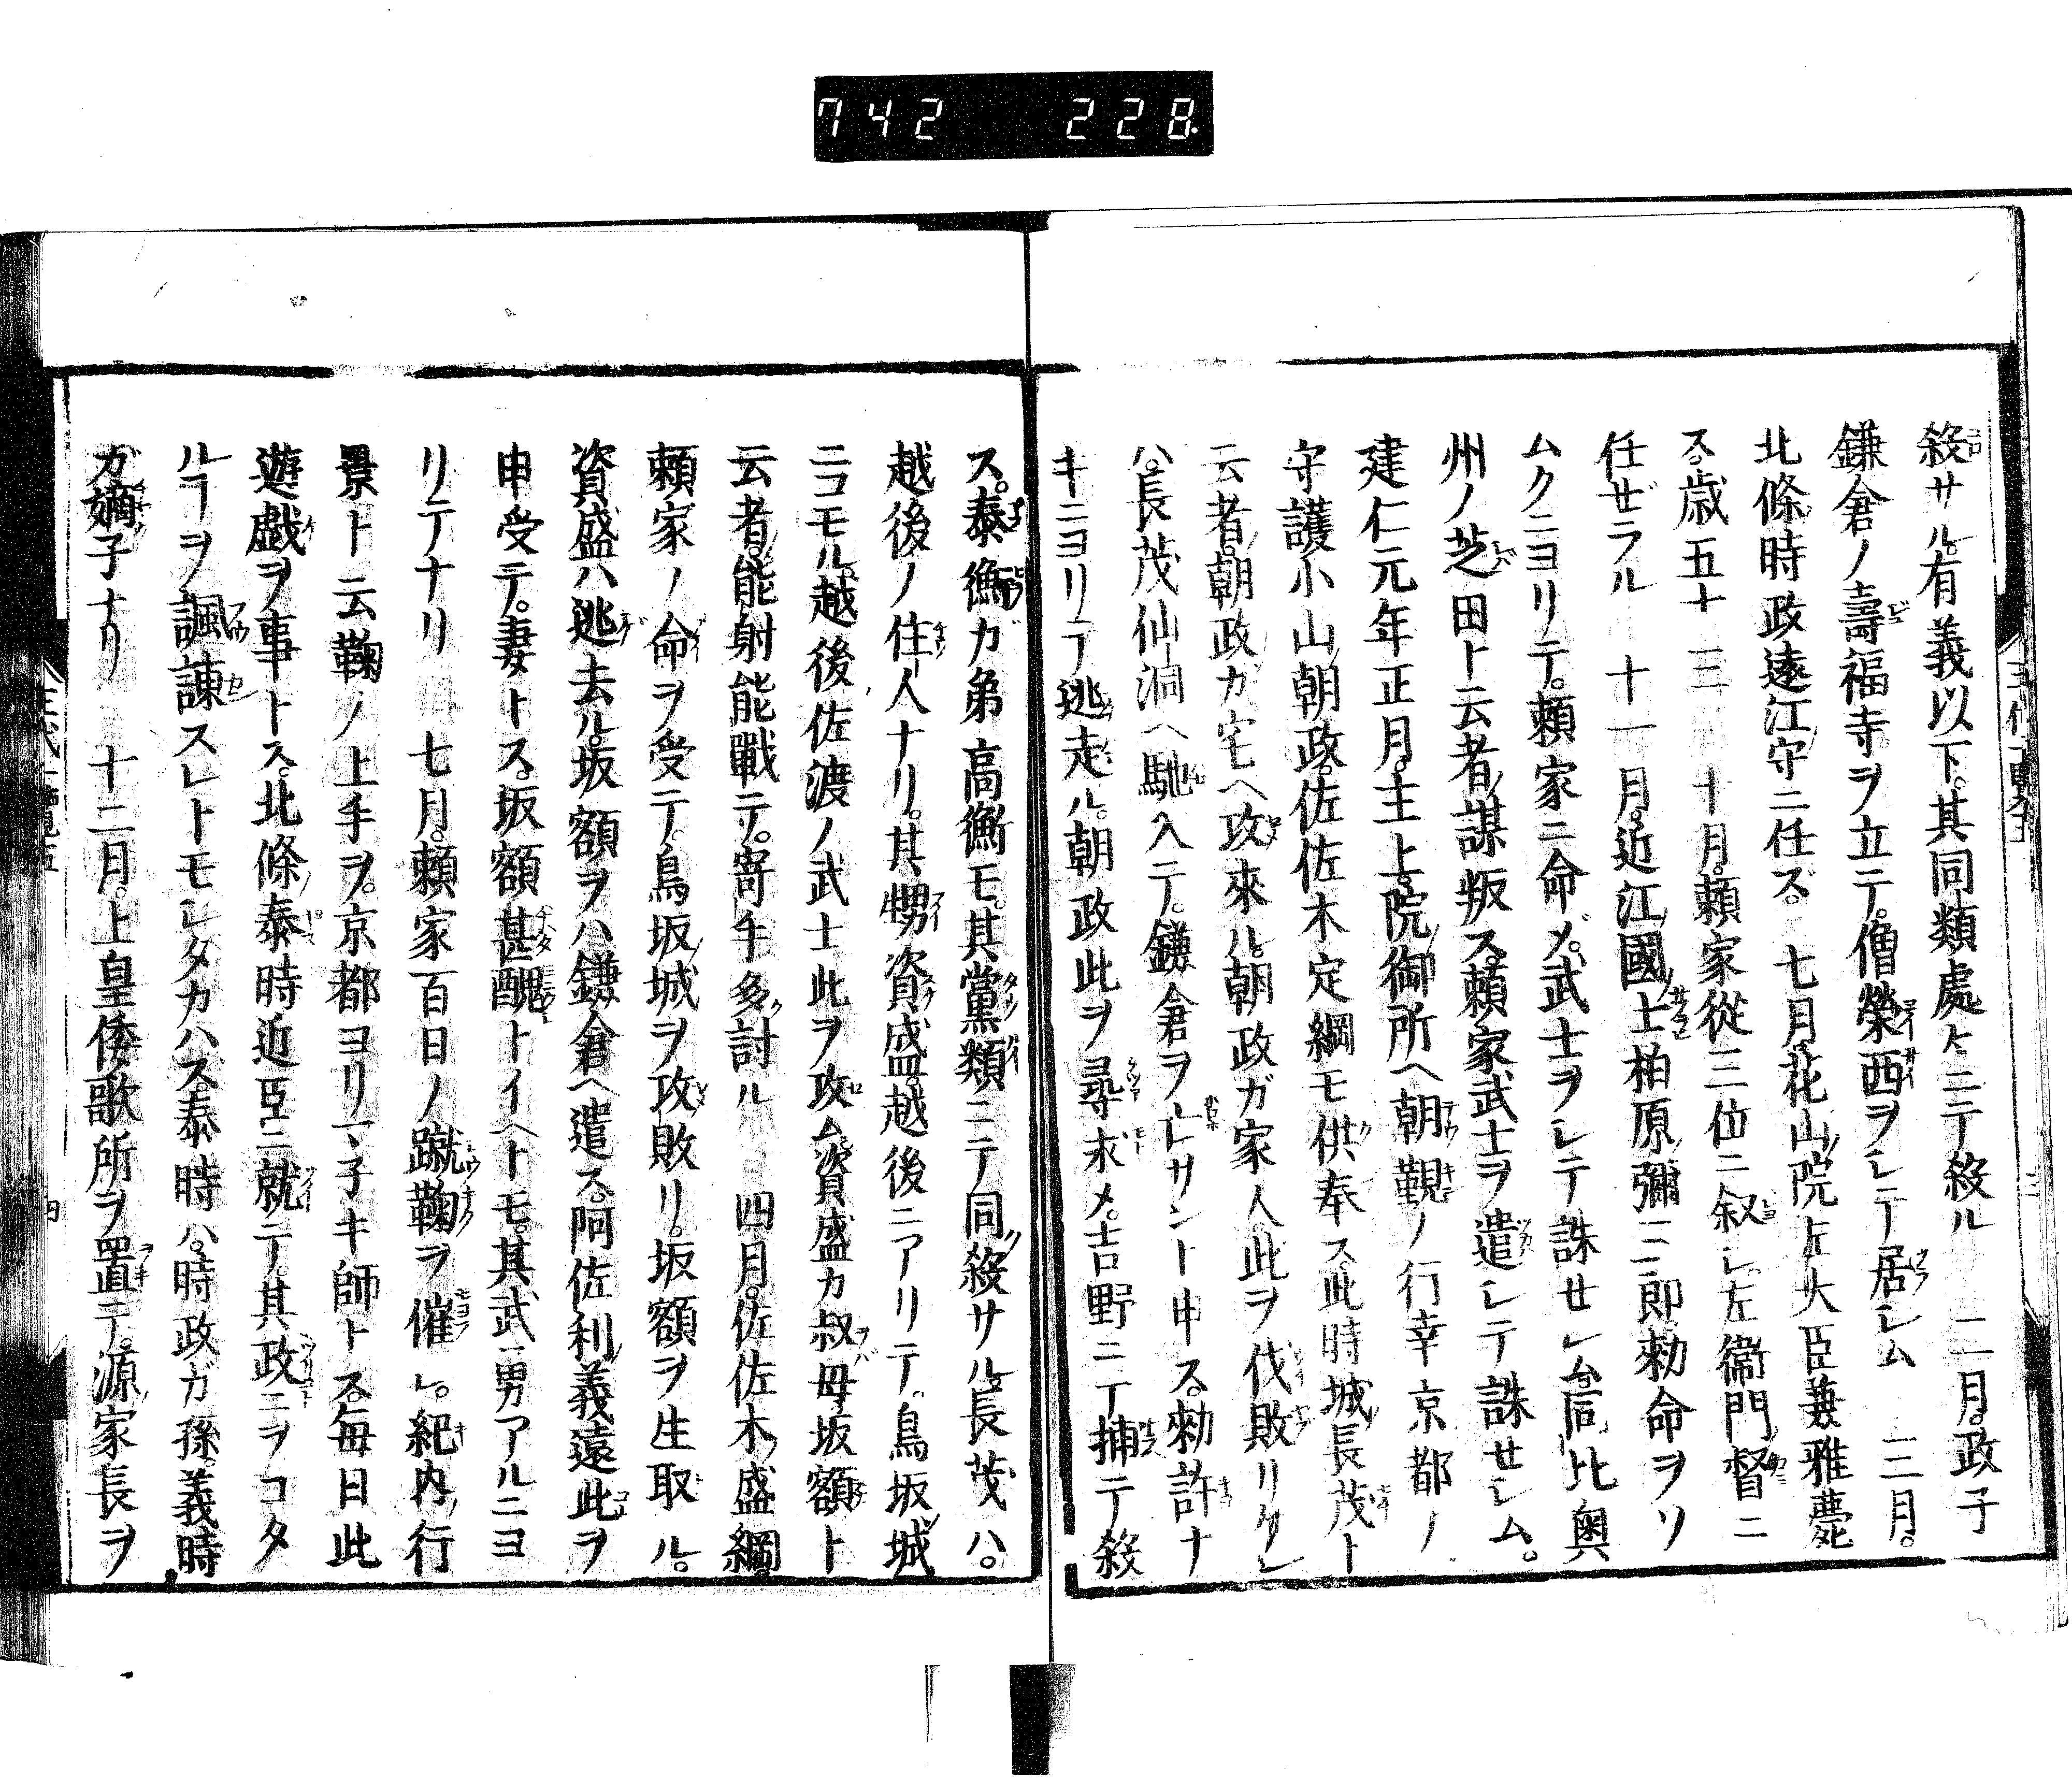 742 228.
殺サル。有義以下。其同類處々ニテ殺ル 二月。政子
鎌倉ノ壽福寺ヲ立テ。僧榮西ヲシテ居シム 三月。
北條時政遠江守ニ任ズ。七月。花山院左大臣兼雅薨
ス。歳五十三 十月。頼家從三位ニ叙シ左衞門督ニ
任ゼラル 十一月。近江國士柏原彌三郎勅命ヲソ
ムクニヨリテ。頼家ニ命ジ。武士ヲシテ誅セシム。同比奥
州ノ芝田ト云者謀叛ス。頼家武士ヲ遣シテ誅セシム。
建仁元年正月。主上。院御所ヘ朝覲ノ行幸京都ノ
守護小山朝政。佐佐木定綱モ供奉ス。此時城長茂ト
云者。朝政ガ宅ヘ攻來ル。朝政ガ家人此ヲ伐敗リケレ
ハ。長茂仙洞ヘ馳入テ。鎌倉ヲ亡サント申ス。勅許ナ
キニヨリテ逃走ル。朝政此ヲ尋求メ。吉野ニテ捕テ殺
ス。泰衡ガ弟高衡モ。其黨類ニテ同殺サル。長茂ハ。
越後ノ住人ナリ。其甥資盛。越後ニアリテ。鳥坂城
ニコモル。越後佐渡ノ武士此ヲ攻ム。資盛カ叔母坂額ト
云者。能射能戰テ。寄手多討ル 四月。佐佐木盛綱。
頼家ノ命ヲ受テ。鳥坂城ヲ攻敗リ。坂額ヲ生取ル。
資盛ハ逃去ル。坂額ヲハ鎌倉ヘ遣ス。阿佐利義遠此ヲ
申受テ。妻トス。坂額甚醜トイヘトモ。其武勇アルニヨ
リテナリ 七月。頼家百日ノ蹴鞠ヲ催シ。紀内行
景ト云鞠ノ上手ヲ。京都ヨリマ子キ師トス。毎日此
遊戯ヲ事トス。北條泰時近臣ニ就テ。其政ニヲコタ
ルヿヲ諷諫スレトモシタカハス。泰時ハ。時政ガ孫。義時
ガ嫡子ナリ 十二月。上皇倭歌所ヲ置テ。源家長ヲ